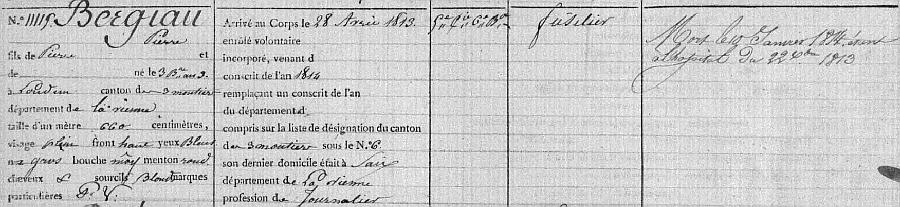 N.º 11115 Bergiau
Pierre
fils de Pierre et
de né le 3 Bre an 3
à Loudun canton de 3 moutiers
département de la vienne
taille d'un mètre 660 centimètres,
visage plein front haut yeux Bleus
nez gros bouche moy menton rond
cheveux & sourcils Blonds marques
particulières
Arrivé au Corps le 28 Avril 1813.
enrôlé volontaire
incorporé, venant d
conscrit de l'an 1814
remplaçant un conscrit de l'an
du département d
compris sur la liste de désignation du canton
de 3 moutier sous le N.º 6.
son dernier domicile était à Saix
département de la vienne
profession de Journalier
fusilier
Mort le Janvier 1814 étant
a l'hopital Du 22 Xbre 1813